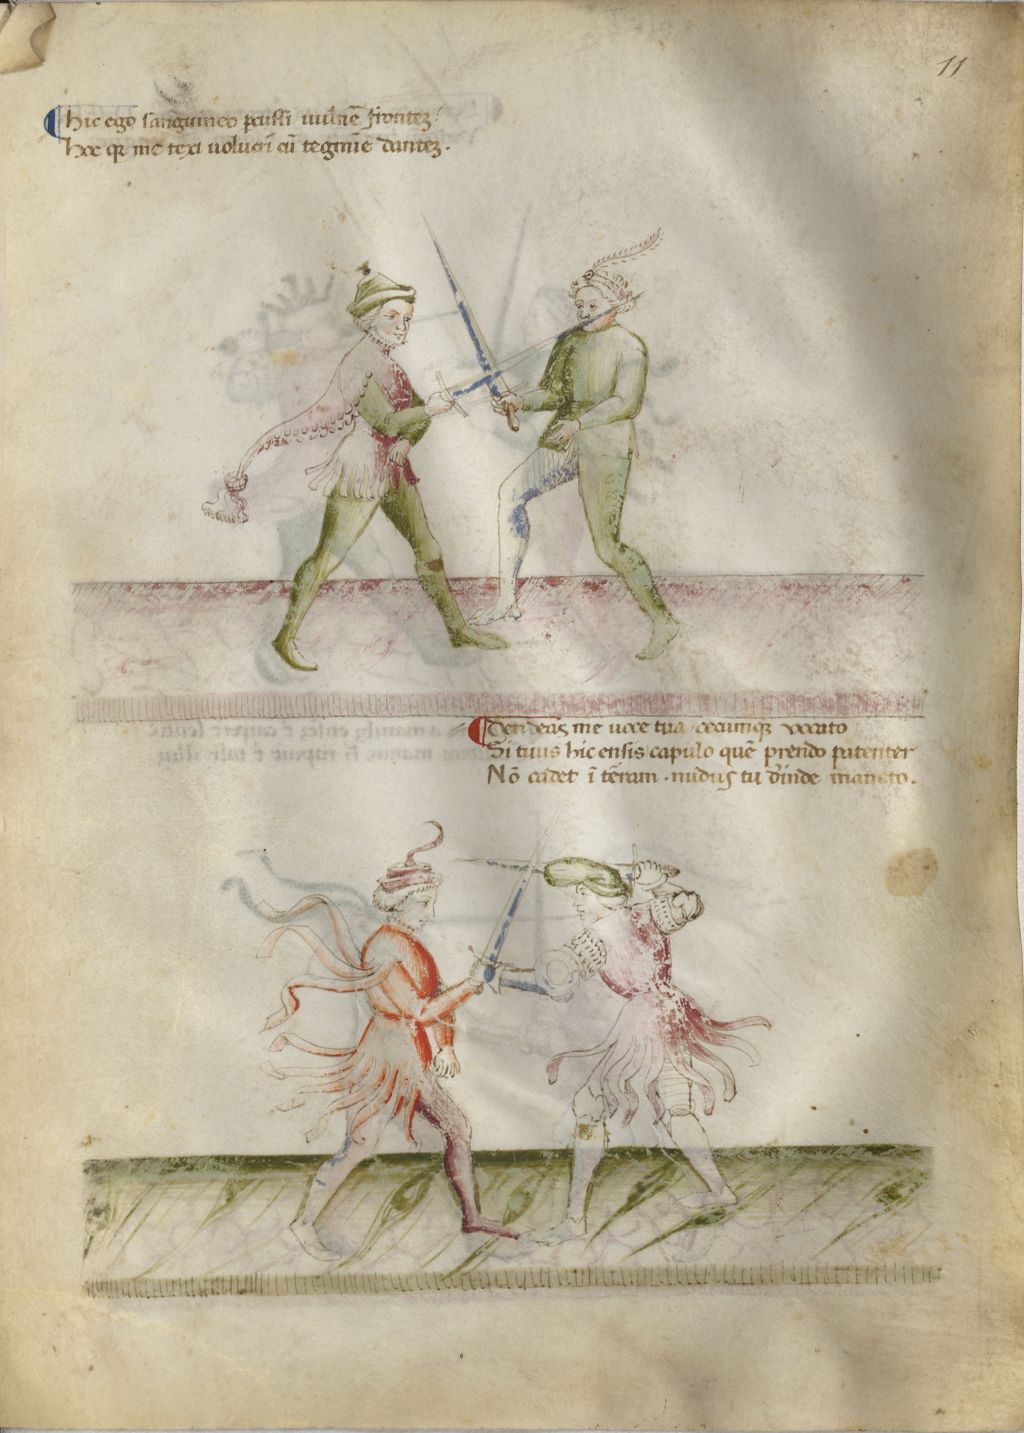 11
hic ego sanguineo pcussi uulnē frontez
hoc qz me texi uolucri cū tegmīe dantez.
me uoce tua. cecumqz vocato
Si tuus hic ensis capulo quē prendo patenter
Nō cadet ī terram. nudus tu deinde maneto.